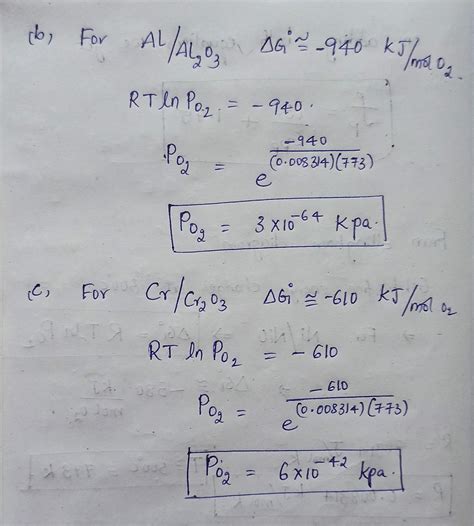 (b) For Al/Al₂O₃ ΔG° ≅ -940 kJ/mol O₂.
RT ln P_O₂ = -940.
P_O₂ = e^(-940/(0.008314)(773))
P_O₂ = 3×10⁻⁶⁴ Kpa.
(c) For Cr/Cr₂O₃ ΔG° ≅ -610 kJ/mol O₂
RT ln P_O₂ = -610
P_O₂ = e^(-610/(0.008314)(773))
P_O₂ = 6×10⁻⁴² kpa.